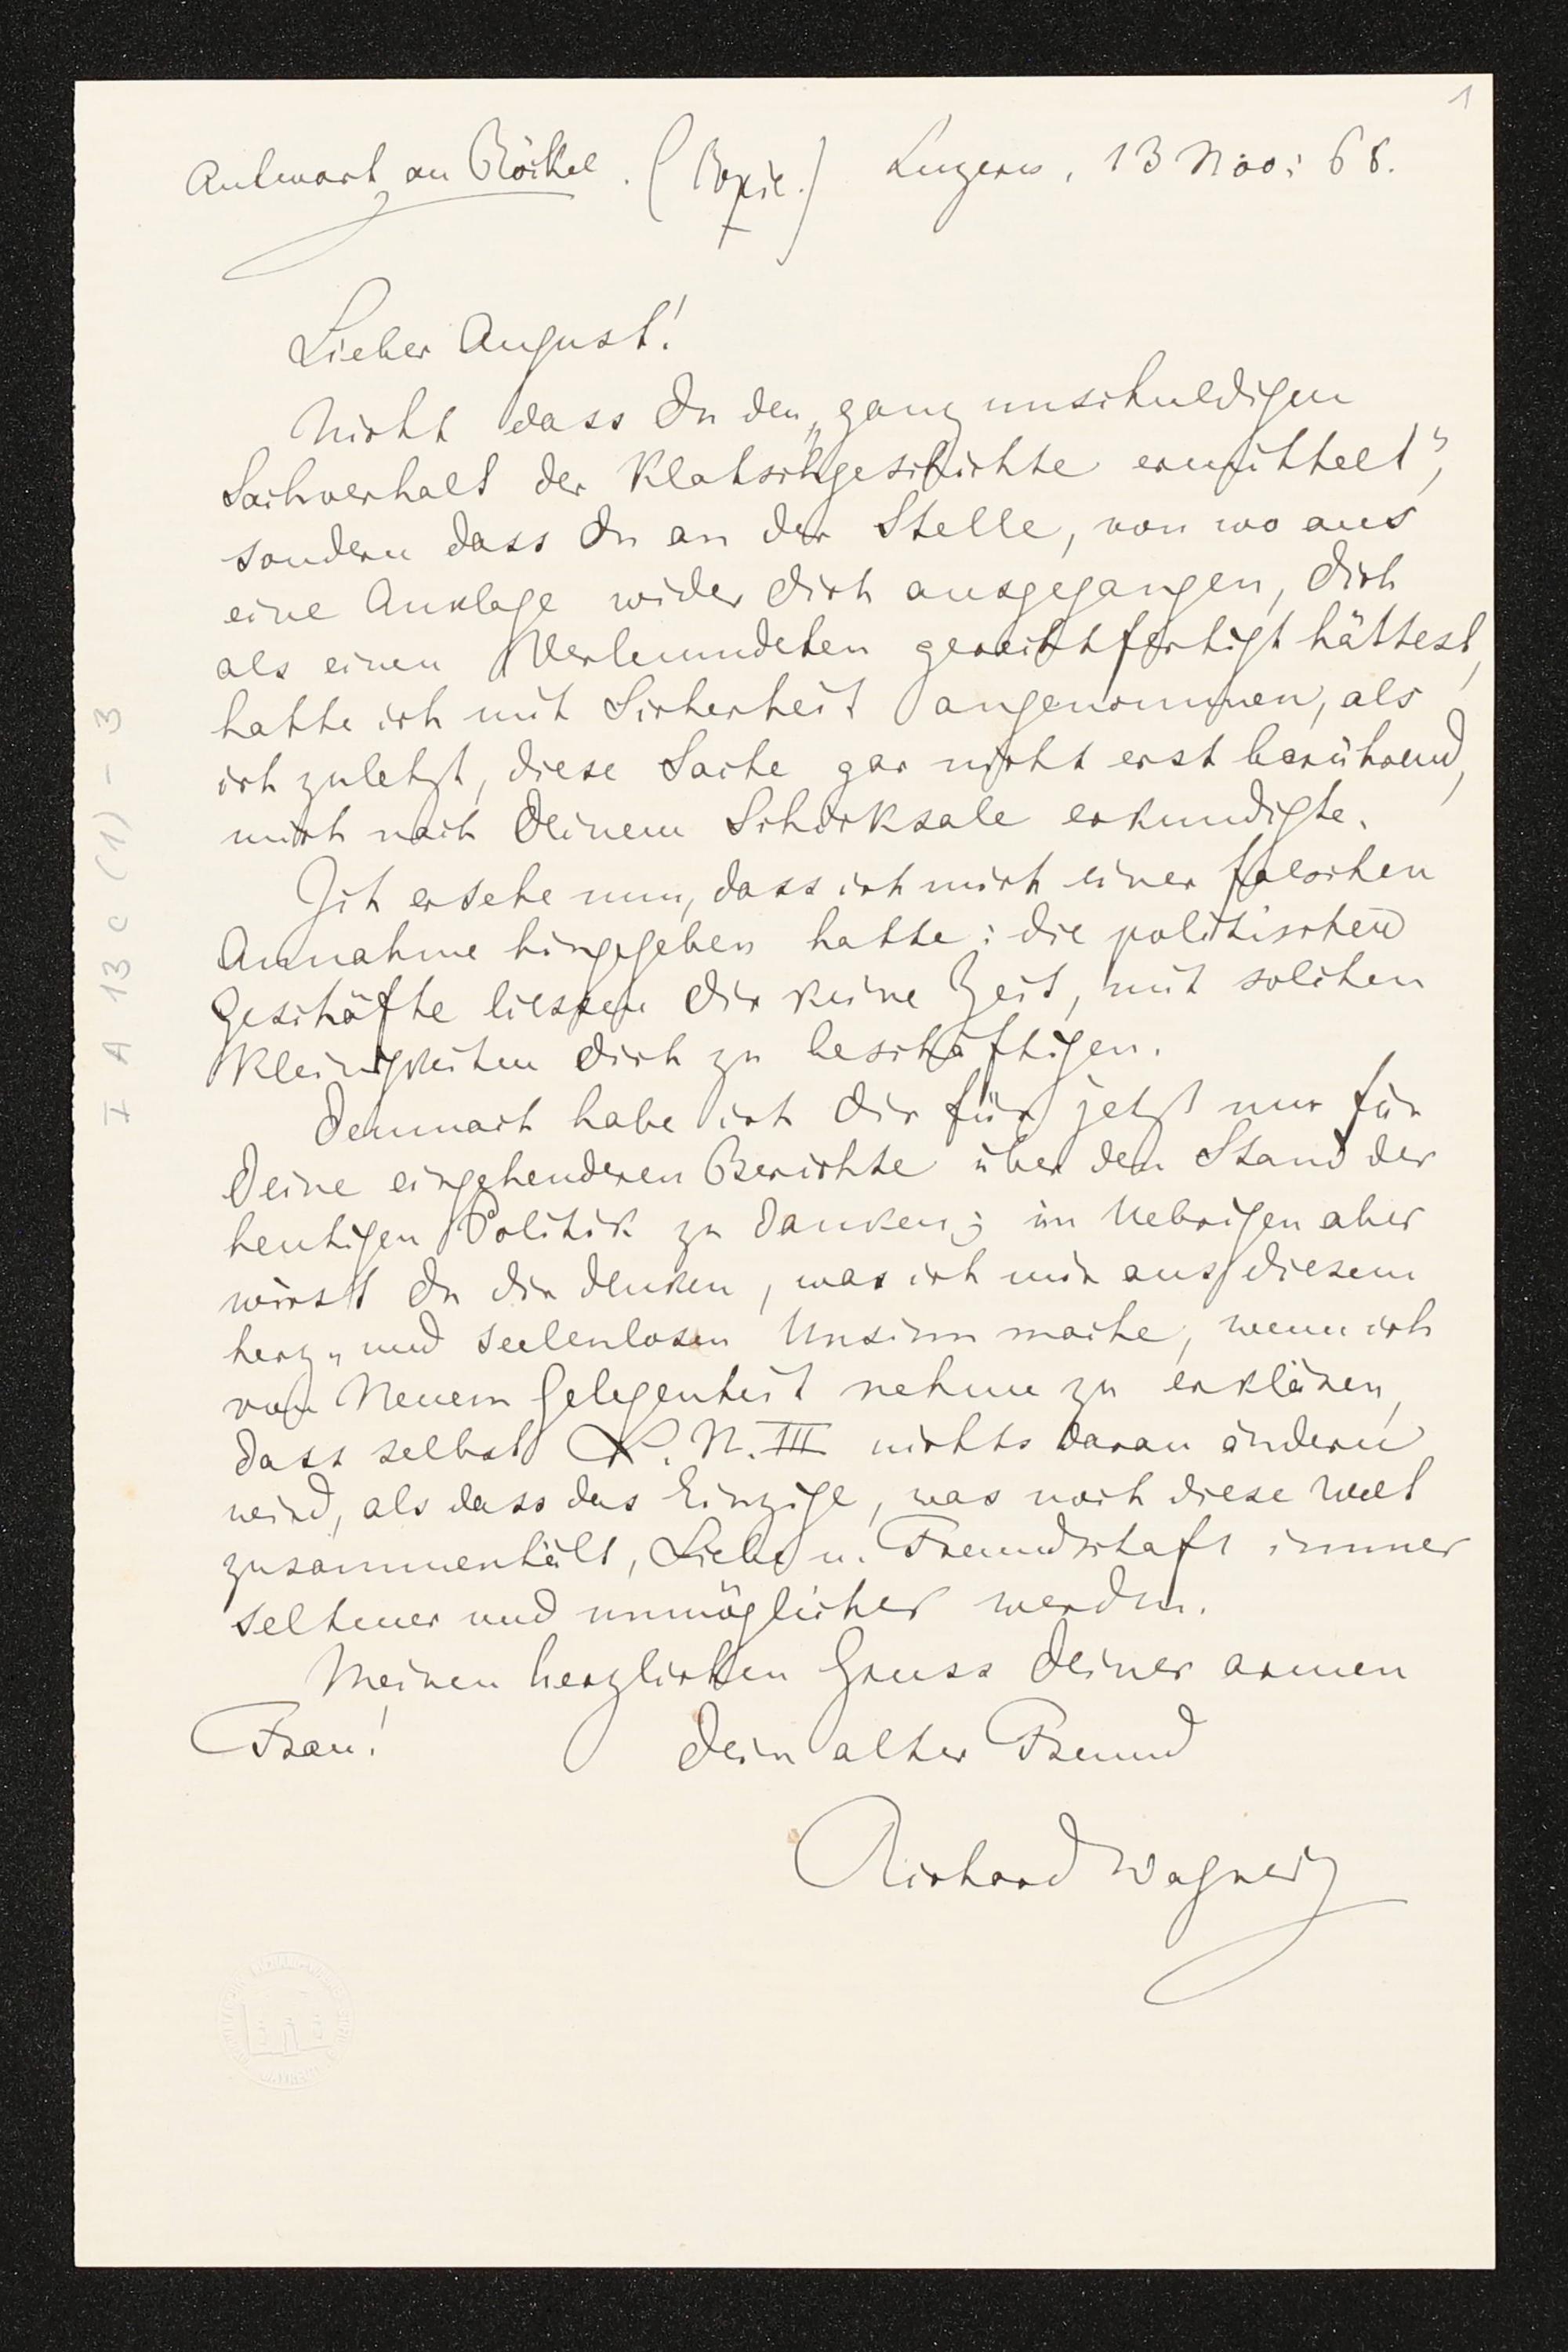 1
Antwort an Röckel. (Copie.) Luzern, 13 Nov: 68.
Lieber August!
Nicht dass Du den „ganz unschuldigen
Sachverhalt der Klatschgeschichte ermittelt",
sondern dass Du an der Stelle, von wo aus
eine Anklage wider Dich ausgegangen, Dich
als einen Verleumdeten gerechtfertigt hättest,
hatte ich mit Sicherheit angenommen, als
ich zuletzt, diese Sache gar nicht erst berührend,
mich nach Deinem Schicksale erkundigte.
Ich ersehe nun, dass ich mich einer falschen
Annahme hingegeben hatte: die politischen
Geschäfte liessen Dir keine Zeit, mit solchen
Kleinigkeiten Dich zu beschäftigen.
Demnach habe ich Dir für jetzt nur für
Deine eingehenderen Berichte über den Stand der
heutigen Politik zu danken; im Uebrigen aber
wirst Du Dir denken, was ich mir aus diesem
herz- und seelenlosen Unsinn mache, wenn ich
von Neuem Gelegenheit nehme zu erklären,
dass selbst L. N. III nichts daran ändern
wird, als dass das Einzige, was noch diese Welt
zusammenhält, Liebe u. Freundschaft immer
seltener und unmöglicher werden.
Meinen herzlichen Gruss Deiner armen
Frau! Dein alter Freund
Richard Wagner
I A 13 c (1) - 3